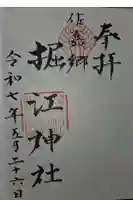 奉拝
佐敷郷
堀江神社
令和七年五月二十六日